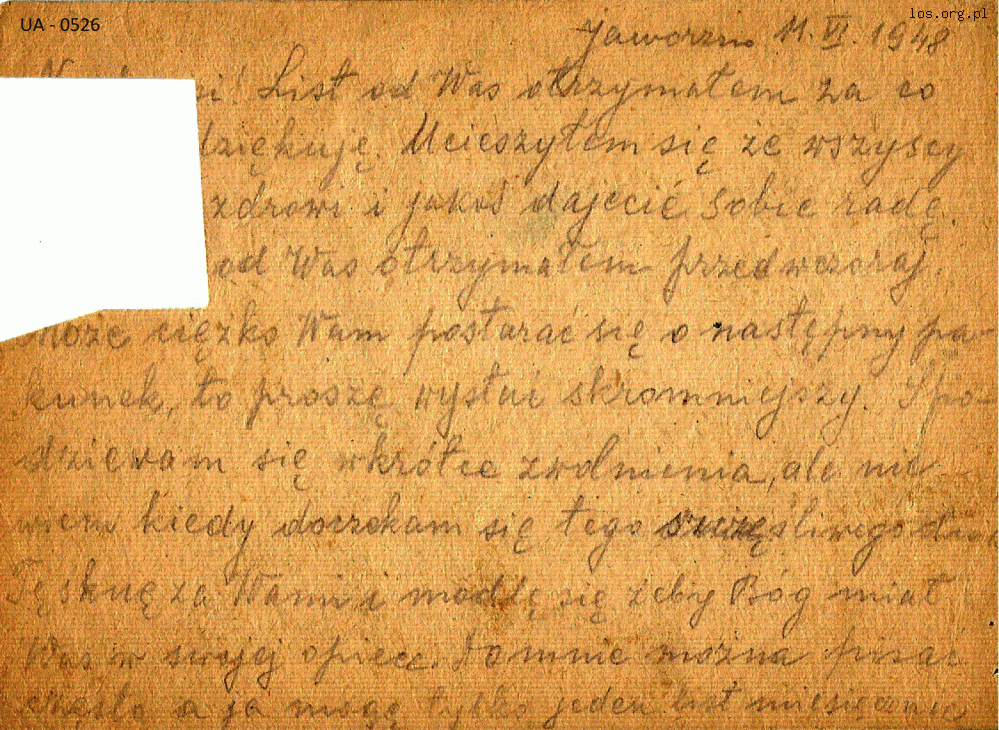 UA - 0526
los.org.pl
Jaworzno 11. VI. 1948
List od Was otrzymałem za co
dziękuję. Ucieszyłem się że wszyscy
zdrowi i jakoś dajecić sobie radę.
od Was otrzymałem przedwczoraj.
może ciężko Wam postarać się o następny pa-
kunek, to proszę wysłać skromniejszy. Spo-
dziewam się wkrótce zwolnienia, ale nie
wiem kiedy doczekam się tego szczęśliwego dnia
Tęsknę za Wami i modlę się żeby Bóg miał
Was w swojej opiece. Do mnie można pisać
często a ja mogę tylko jeden list miesięcznie